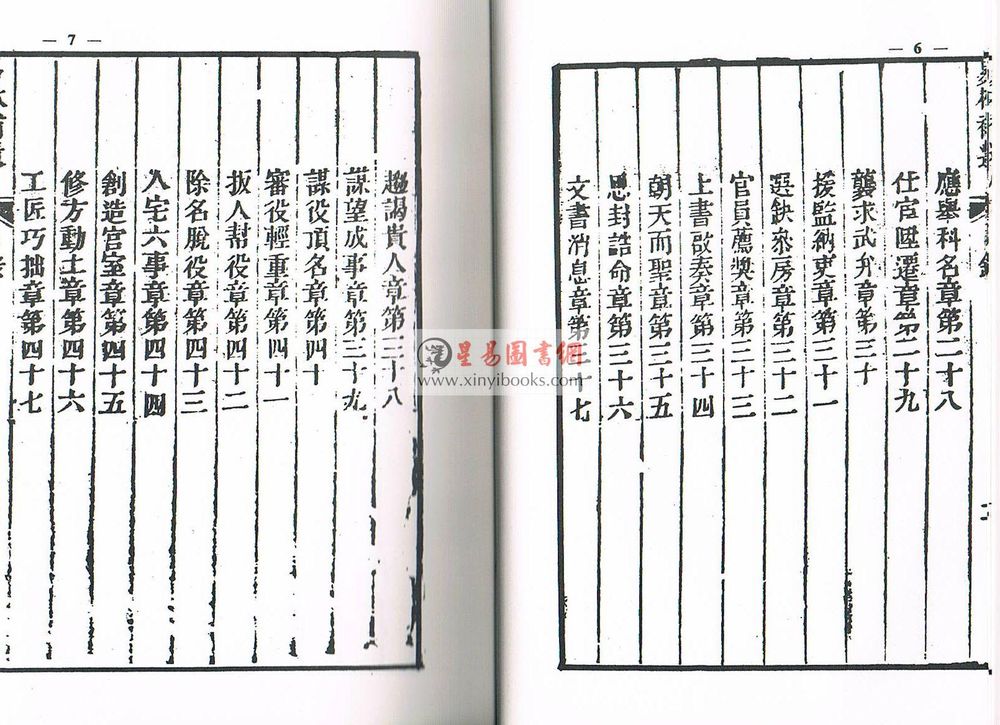 — 6 —
應舉科名章第二十八
仕宦陞遷章第二十九
襲求武弁章第三十
援監納吏章第三十一
選缺叅房章第三十二
官員薦獎章第三十三
上書啟奏章第三十四
朝天面聖章第三十五
恩封誥命章第三十六
文書消息章第三十七
— 7 —
趨謁貴人章第三十八
謀望成事章第三十九
謀役頂名章第四十
審役輕重章第四十一
扳人幫役章第四十二
除名脫役章第四十三
入宅六事章第四十四
創造宮室章第四十五
修方動土章第四十六
工匠巧拙章第四十七
星易圖書網
www.xinyibooks.com